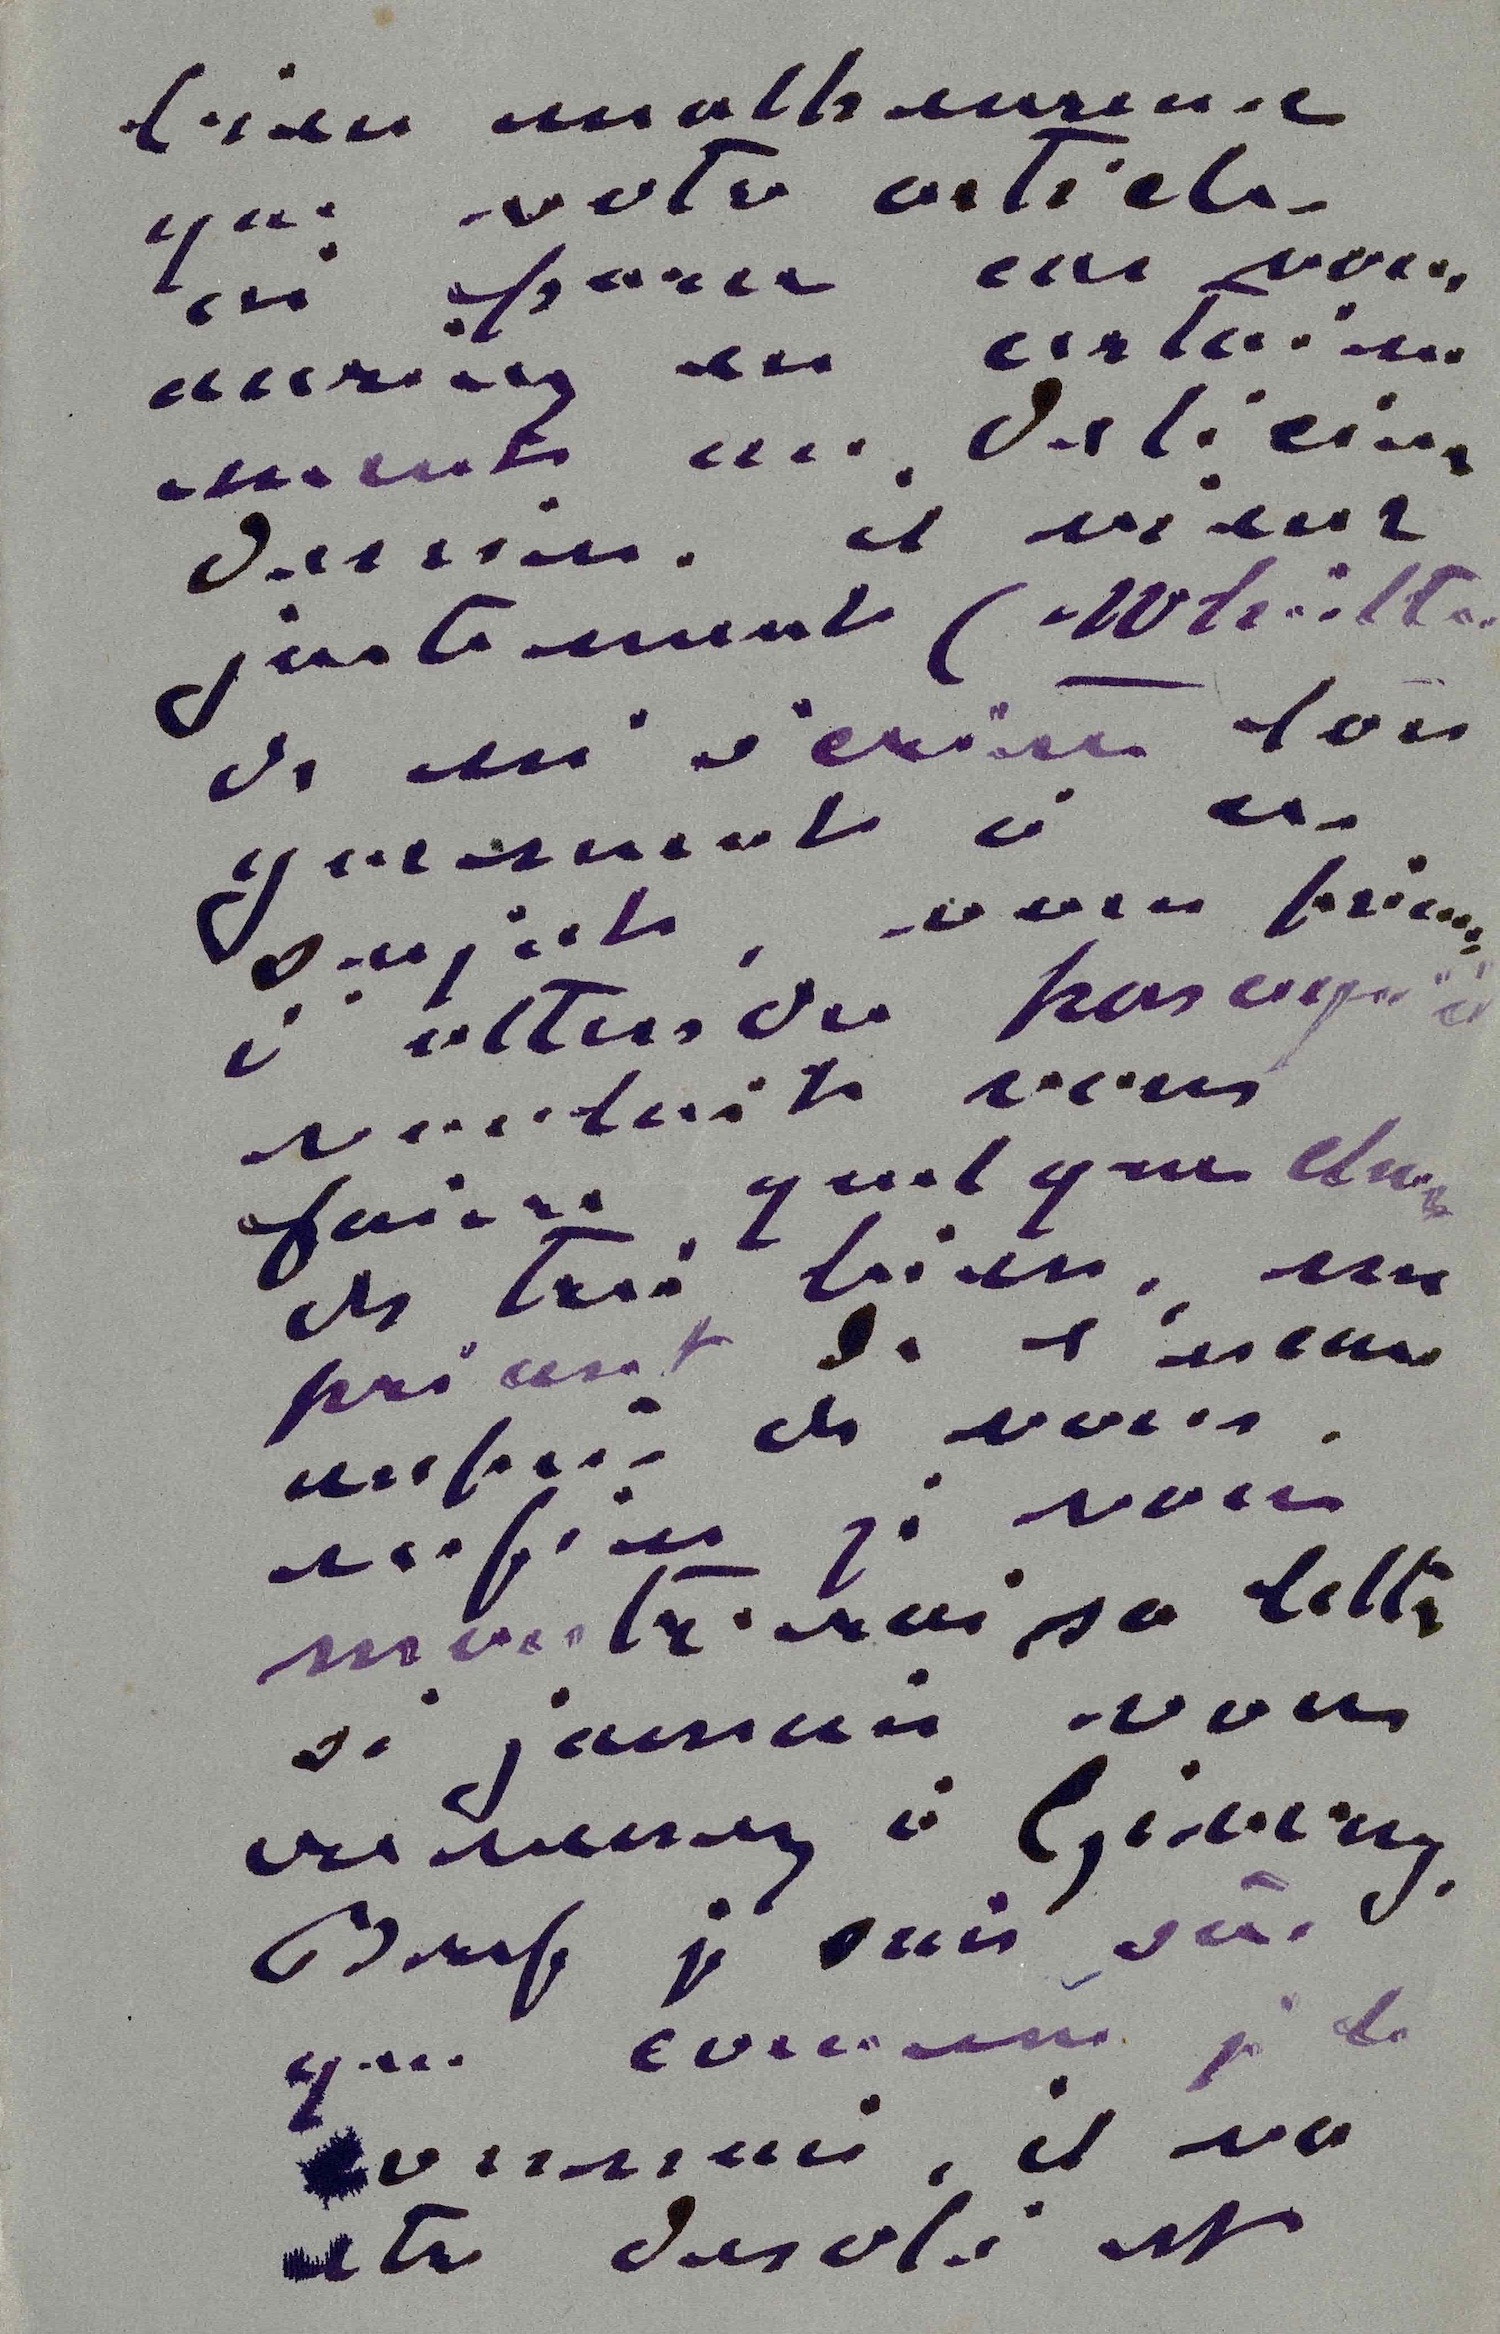 bien malheureux
que votre article
ai paru car vous
auriez eu certaine
ment un delicieux
dessin. il vient
justement (Whistler
de m'écrire lon
guement à ce
sujet, vous priant
d'attendre parce qu'il
voulait vous
faire quelque chose
de très bien, me
priant de l'excuser
auprès de vous.
enfin je vous
montrerai sa lettre
si jamais vous
revenez à Giverny.
Bref je suis sûr
que comme je le
connais, il va
etre desolé et